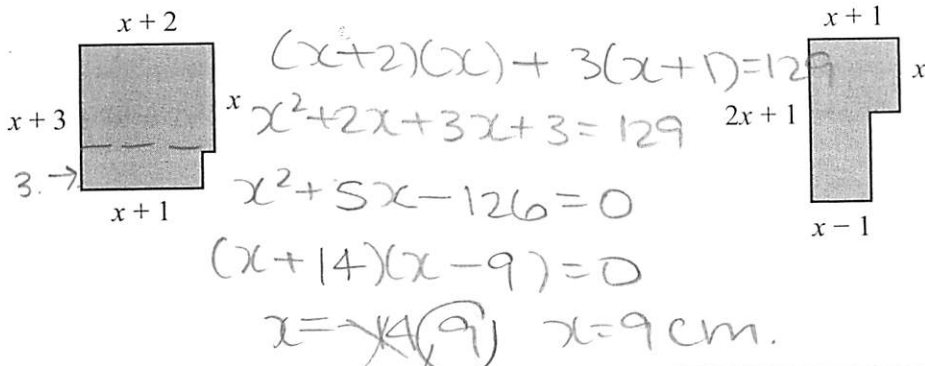 x + 2
x + 3
x
3. →
x + 1
(x+2)(x) + 3(x+1)=129
x²+2x+3x+3=129
x²+5x-126=0
(x+14)(x-9)=0
x=-14, 9 x=9cm.
x + 1
x
2x + 1
x − 1